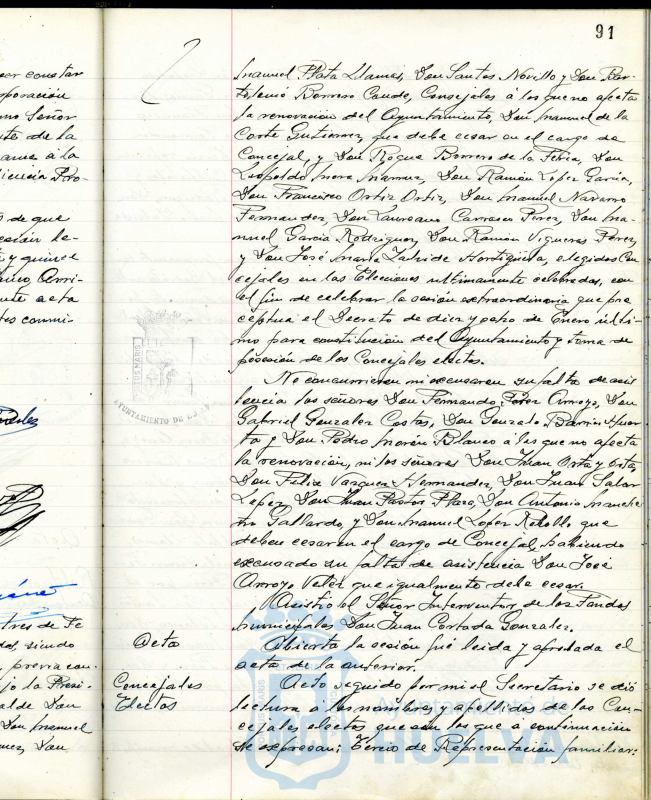 91
Manuel Plata Llamas, Don Santos Novillo y Don Bar-
tolomé Borrero Caude, Concejales á los que no afecta
la renovación del Ayuntamiento, Don Manuel de la
Corte Gutierrez, que debe cesar en el cargo de
Concejal, y Don Roque Borrero de la Feria, Don
Leopoldo Mora Don Ramón Lopez Garcia,
Don Francisco Ortiz Ortiz, Don Manuel Navarro
Fernandez, Don Laureano Carrasco Perez, Don Ma-
nuel Garcia Rodriguez, Don Ramón Vigueras Perez,
y Don José Maria elegidos Con
cejales en las Elecciones ultimamente celebradas, con
el fin de celebrar la sesión extraordinaria que pre
ceptua el Decreto de diez y ocho de Enero últi-
mo para constitución del Ayuntamiento y toma de
posesión de los Concejales electos.
No concurrieron ni excusaron su falta de asis
tencia los señores Don Fernando Perez Arroyo, Don
Gabriel Gonzalez Costas, Don Gonzalo Barrin Huer
ta y Don Pedro Morón Blanco á los que no afecta
la renovación, ni los señores Don Juan Orta y Orta,
Don Felix Vazquez Hernandez, Don Juan Salar
Lopez, Don Juan Pastor Plaza, Don Antonio
Gallardo, y Don Manuel Lopez Rebollo que
deben cesar en el cargo de Concejal, habiendo
excusado su falta de asistencia Don José
Arroyo Velez que igualmente debe cesar.
Asistió el Señor Interventor de los Fondos
municipales Don Juan Cortada Gonzalez.
Acta
Abierta la sesión fué leida y aprobada el
acta de la anterior.
Concejales
Electos
Acto seguido por mi el Secretario se dió
lectura a los nombres y apellidos de los Con-
cejales electos que son los que a continuación
se expresan: Tercio de Representación familiar:
AYUNTAMIENTO DE
HUELVA